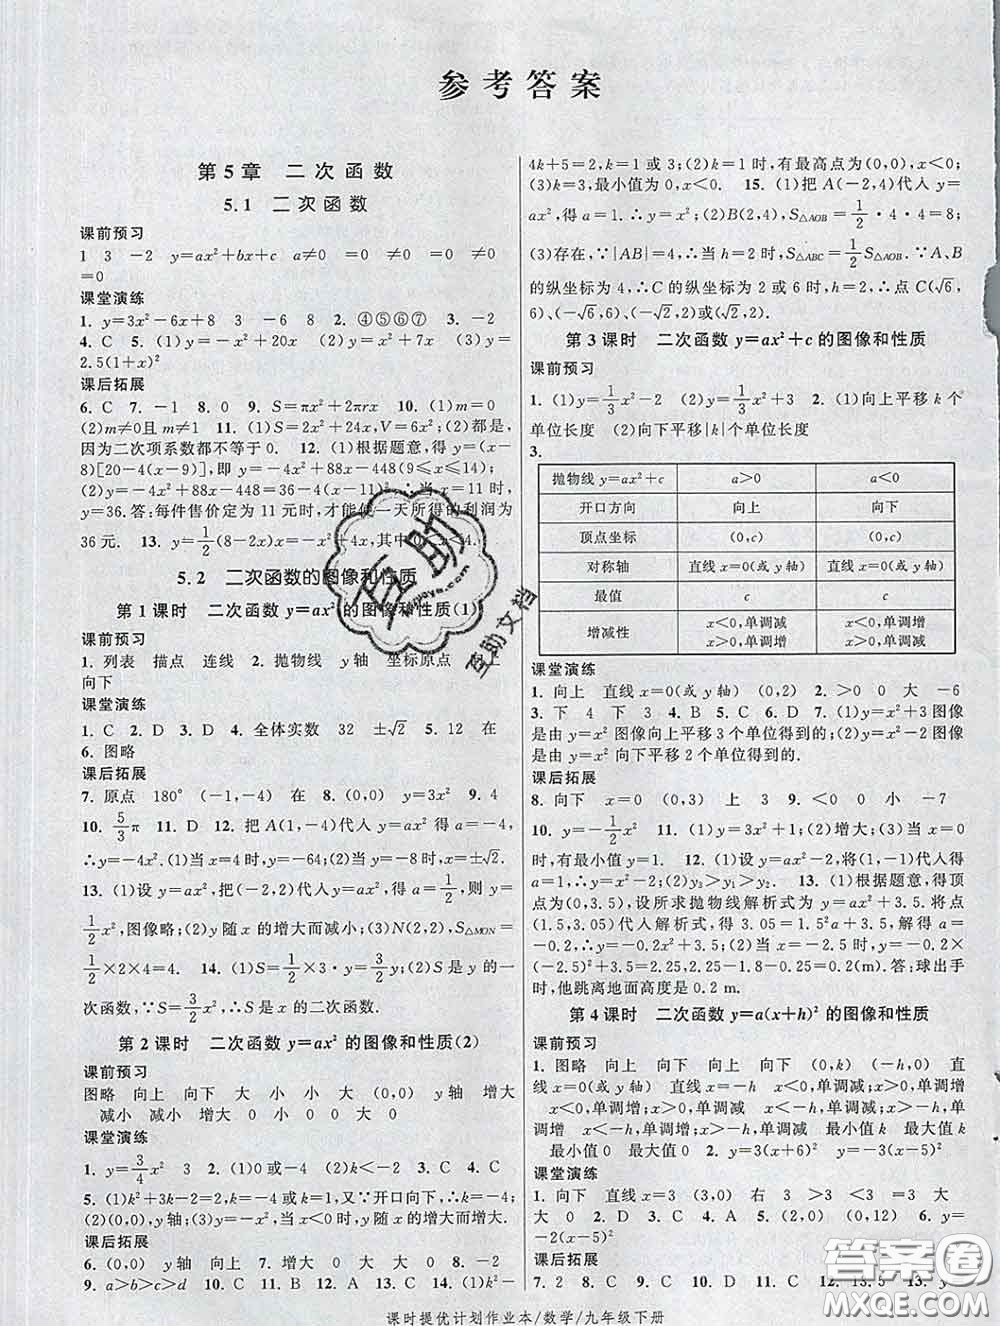 参考答案
第5章 二次函数
5.1 二次函数
课前预习
1 3 -2 y=ax²+bx+c a≠0 =0 ≠0 =0 ≠0
=0
课堂演练
1. y=3x²-6x+8 3 -6 8 2. ④⑤⑥⑦ 3. -2
4. C 5. (1)y=-x²+20x (2)y=x²+7x (3)y=
2.5(1+x)²
课后拓展
6. C 7. -1 8. 0 9. S=πx²+2πrx 10. (1)m=0
(2)m≠0且m≠1 11. (1)S=2x²+24x,V=6x²;(2)都是,
因为二次项系数都不等于0. 12. (1)根据题意,得y=(x
-8)[20-4(x-9)],即y=-4x²+88x-448(9≤x≤14);
(2)y=-4x²+88x-448=-4(x-11)²
y=36.答:每件售价定为11元时,才能使一天所得的利润为
36元. 13. y=1/2(8-2x)x=-x²+4x,其中0<x<4.
5.2 二次函数的图像和性质
第1课时 二次函数y=ax²的图像和性质(1)
课前预习
1. 列表 描点 连线 2. 抛物线 y轴 坐标原点 上
向下
课堂演练
1. C 2. D 3. D 4. 全体实数 32 ±√2 5. 12 在
6. 图略
课后拓展
7. 原点 180° (-1,-4) 在 8. (0,0) y=3x² 9. 4
10. 5/3π 11. D 12. 把A(1,-4)代入y=ax²得a=-4,
∴y=-4x².(1)当x=4时,y=-64;(2)当y=-8时,x=±√2.
13. (1)设y=ax²,把(-2,2)代入y=ax²,得a=1/2,则y=
1/2x²,图像略;(2)y随x的增大而减小;(3)N(2,2),S△MON=
1/2×2×4=4. 14. (1)S=1/2×3·y=3/2y;(2)S是y的一
次函数,∵S=3/2x²,∴S是x的二次函数.
第2课时 二次函数y=ax²的图像和性质(2)
课前预习
图略 向上 向下 大 小 小 大 (0,0) y轴 增大
减小 减小 增大 0 小 0 0 大 0
课堂演练
1. y=3/4x² 3 2. (1)a>-4 (2)k<-2 3. C 4. C
5. (1)k²+3k-2=2,k=-4或k=1,又∵开口向下,∴k=-4;
(2)(0,0),y轴;(3)当x<0时,y随x的增大而增大.
课后拓展
6. (0,0) y轴 向上 7. 增大 大 0 0 8. -2
9. a>b>c>d 10. C 11. C 12. D 13. C 14. (1)k²-
4k+5=2,k=1或3;(2)k=1时,有最高点为(0,0),x<0;
(3)k=3,最小值为0,x<0. 15. (1)把A(-2,4)代入y=
ax²,得a=1.∴y=x²;(2)B(2,4),S△AOB=1/2·4·4=8;
(3)存在,∵|AB|=4,∴当h=2时,S△ABC=1/2S△AOB.∵A、B
的纵坐标为4,∴C的纵坐标为2或6时,∴点C(√6,
6)、(-√6,6)、(-√2,2)或(√2,2).
第3课时 二次函数y=ax²+c的图像和性质
课前预习
1. (1)y=1/3x²-2 (2)y=1/3x²+3 2. (1)向上平移k个
单位长度 (2)向下平移|k|个单位长度
3.
抛物线y=ax²+c a>0 a<0
开口方向 向上 向下
顶点坐标 (0,c) (0,c)
对称轴 直线x=0(或y轴) 直线x=0(或y轴)
最值 c c
增减性 x<0,单调减 x>0,单调增 x<0,单调增 x>0,单调减
课堂演练
1. 向上 直线x=0(或y轴) (0,2) 2. >0 0 大 -6
3. 下 4 下 3 4. B 5. C 6. D 7. (1)y=x²+3图像
是由y=x²图像向上平移3个单位得到的;(2)y=x²-2图像
是由y=x²向下平移2个单位得到的.
课后拓展
8. 向下 x=0 (0,3) 上 3 9. <0 0 小 -7
10. y=-1/2x² 11. (1)y=3x²+1;(2)增大;(3)当x=0
时,有最小值1. 12. (1)y=ax²-2,将(1,-1)代入得
a=1,∴y=x²-2;(2)y₃>y₁>y₂. 13. (1)根据题意,得顶
点为(0,3.5),设所求抛物线解析式为y=ax²+3.5.将点
(1.5,3.05)代入解析式,得3.05=1.5²a+3.5.解得a=
-0.2,∴y=-0.2x²+3.5;(2)当x=-2.5时,y=-0.2×
(-2.5)²+3.5=2.25,2.25-1.8-0.25=0.2(m).答:球出手
时,他跳离地面高度是0.2 m.
第4课时 二次函数y=a(x+h)²的图像和性质
课前预习
1. 图略 向上 向下 向上 向下 (0,k) (-h,0) 直
线x=0(或y轴) 直线x=-h x<0,单调减;x>0,单调增
x<0,单调增;x>0,单调减 x<-h,单调减;x>-h,单调增
x<-h,单调增;x>-h,单调减 最小值k 最大值k
最小值0 最大值0 2. y=3(x+2)² y=-3(x-5)²
课堂演练
1. 向下 直线x=3 (3,0) 右 3 >3 <3 =3 大
大 0 2. D 3. C 4. A 5. (2,0) (0,12) 6. y=
-2(x-5)²
课后拓展
7. 2 2 8. C 9. B 10. C 11. B 12. C 13. 5 14. y
课时提优计划作业本/数学/九年级下册
互助
互助文档
答案圈
MXQE.COM